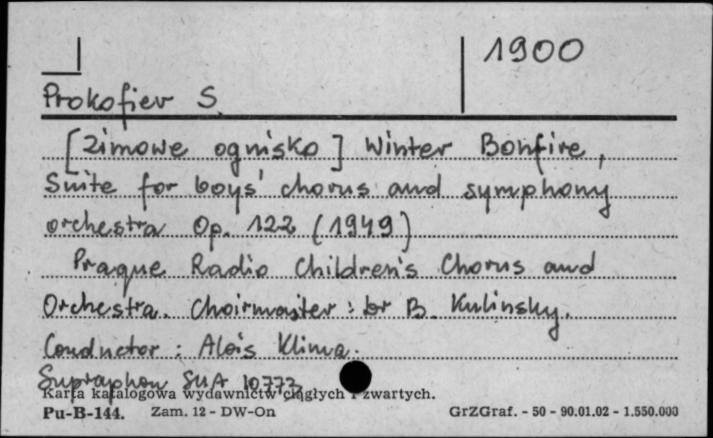 1900
Prokofiev S.
[Zimowe ognisko] Winter Bonfire,
Suite for boys' chorus and symphony
orchestra Op. 122 (1949)
Prague Radio Children's Chorus and
Orchestra. Choirmaster: dr B. Kulinsky.
Conductor: Alois Klima.
Supraphon SUA 10773
Karta katalogowa wydawnictw ciągłych i zwartych.
Pu-B-144. Zam. 12 - DW-On GrZGraf. - 50 - 90.01.02 - 1.550.000